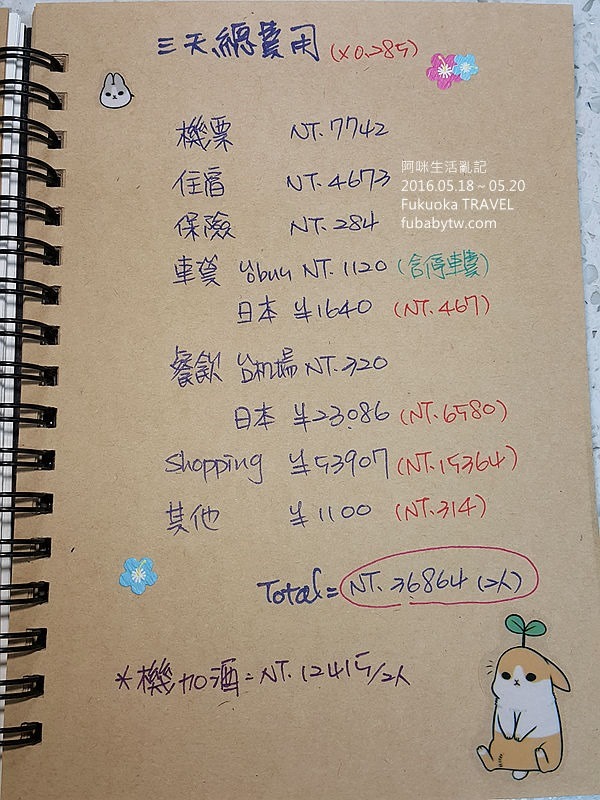 三天總費用 (x0.285)
機票 NT.7742
住宿 NT.4673
保險 NT.284
車資 台灣 NT.1120 (含停車費)
日本 ¥1640 (NT.467)
餐飲 台机場 NT.320
日本 ¥23086 (NT.6580)
Shopping ¥53907 (NT.15364)
其他 ¥1100 (NT.314)
Total= NT.36864 (2人)
*機加酒=NT.12415/2人
阿咪生活亂記
2016.05.18~05.20
Fukuoka TRAVEL
fubabytw.com